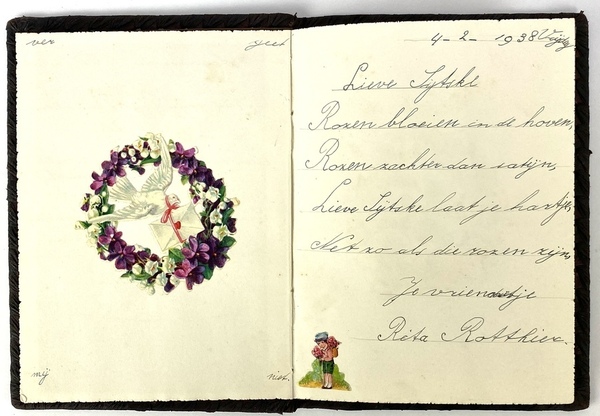 ver geet
mij niet.
4-2-1938 Vrijdag
Lieve Sijtske
Rozen bloeien in de hoven,
Rozen zachter dan satijn,
Lieve Sijtske laat je hartje,
Net zo als die rozen zijn,
Je vriendetje
Rita Rotthier.